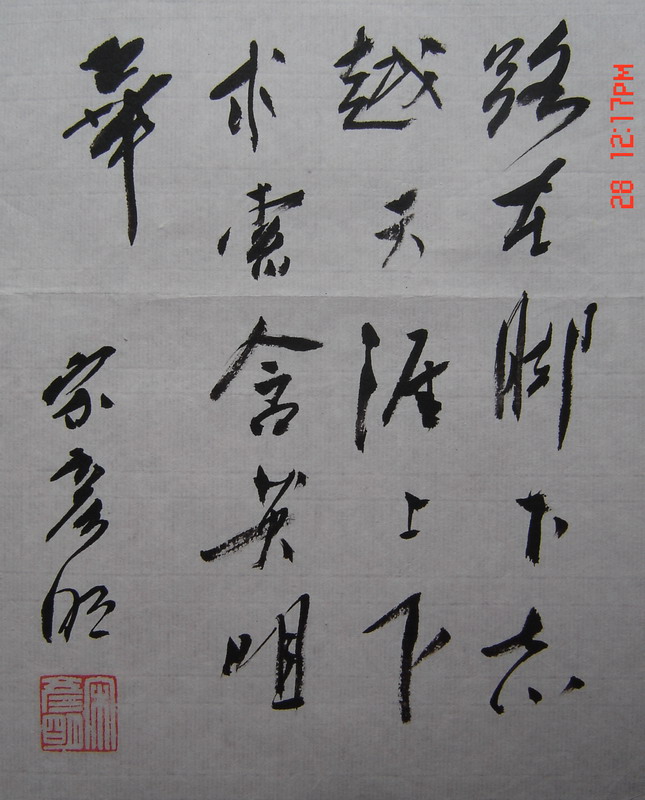 路在脚下志
越天涯上下
求索含英咀
華
宋彦明
宋彦明
28 12:17PM